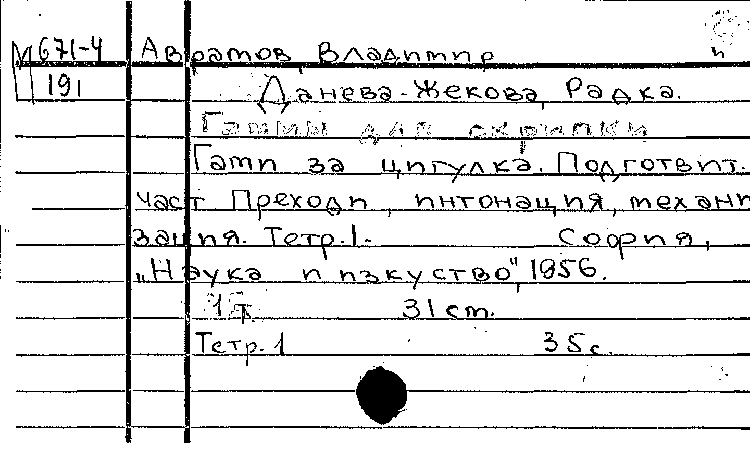 М 671-4 Авратов, Владитир
191 Данева-Жекова, Радка.
Гаммы для скрипки
Гати за цигулка. Подготвит.
част Преходи, интонация, механи
зация. Тетр.1. София,
„Наука и изкуство", 1956.
1 т 31 cm.
Тетр.1 35 с.